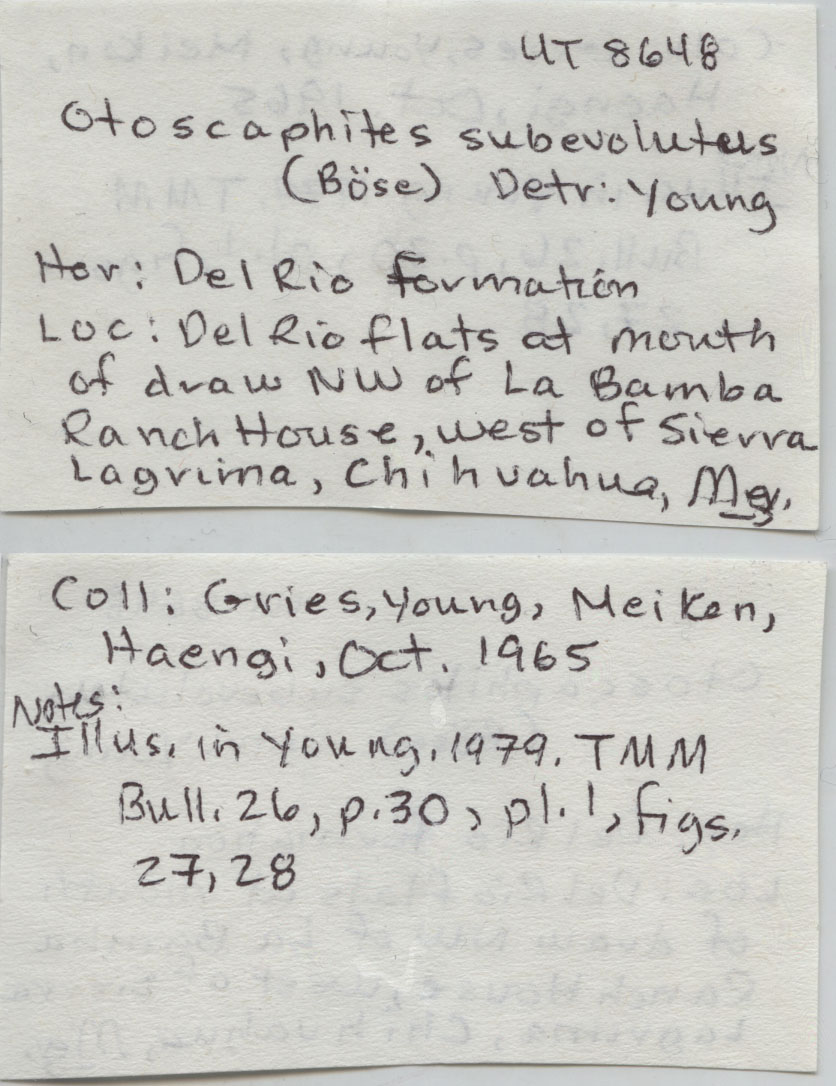 UT 8648
Otoscaphites subevolutus
(Böse) Detr: Young
Hor: Del Rio Formation
Loc: Del Rio flats at mouth
of draw NW of La Bamba
Ranch House, west of Sierra
Lagrima, Chihuahua,
Coll: Gries, Young, Meiken,
Haengi, Oct. 1965
Notes:
Illus. in Young. 1979. TMM
Bull. 26, p.30, pl.1, figs.
27, 28